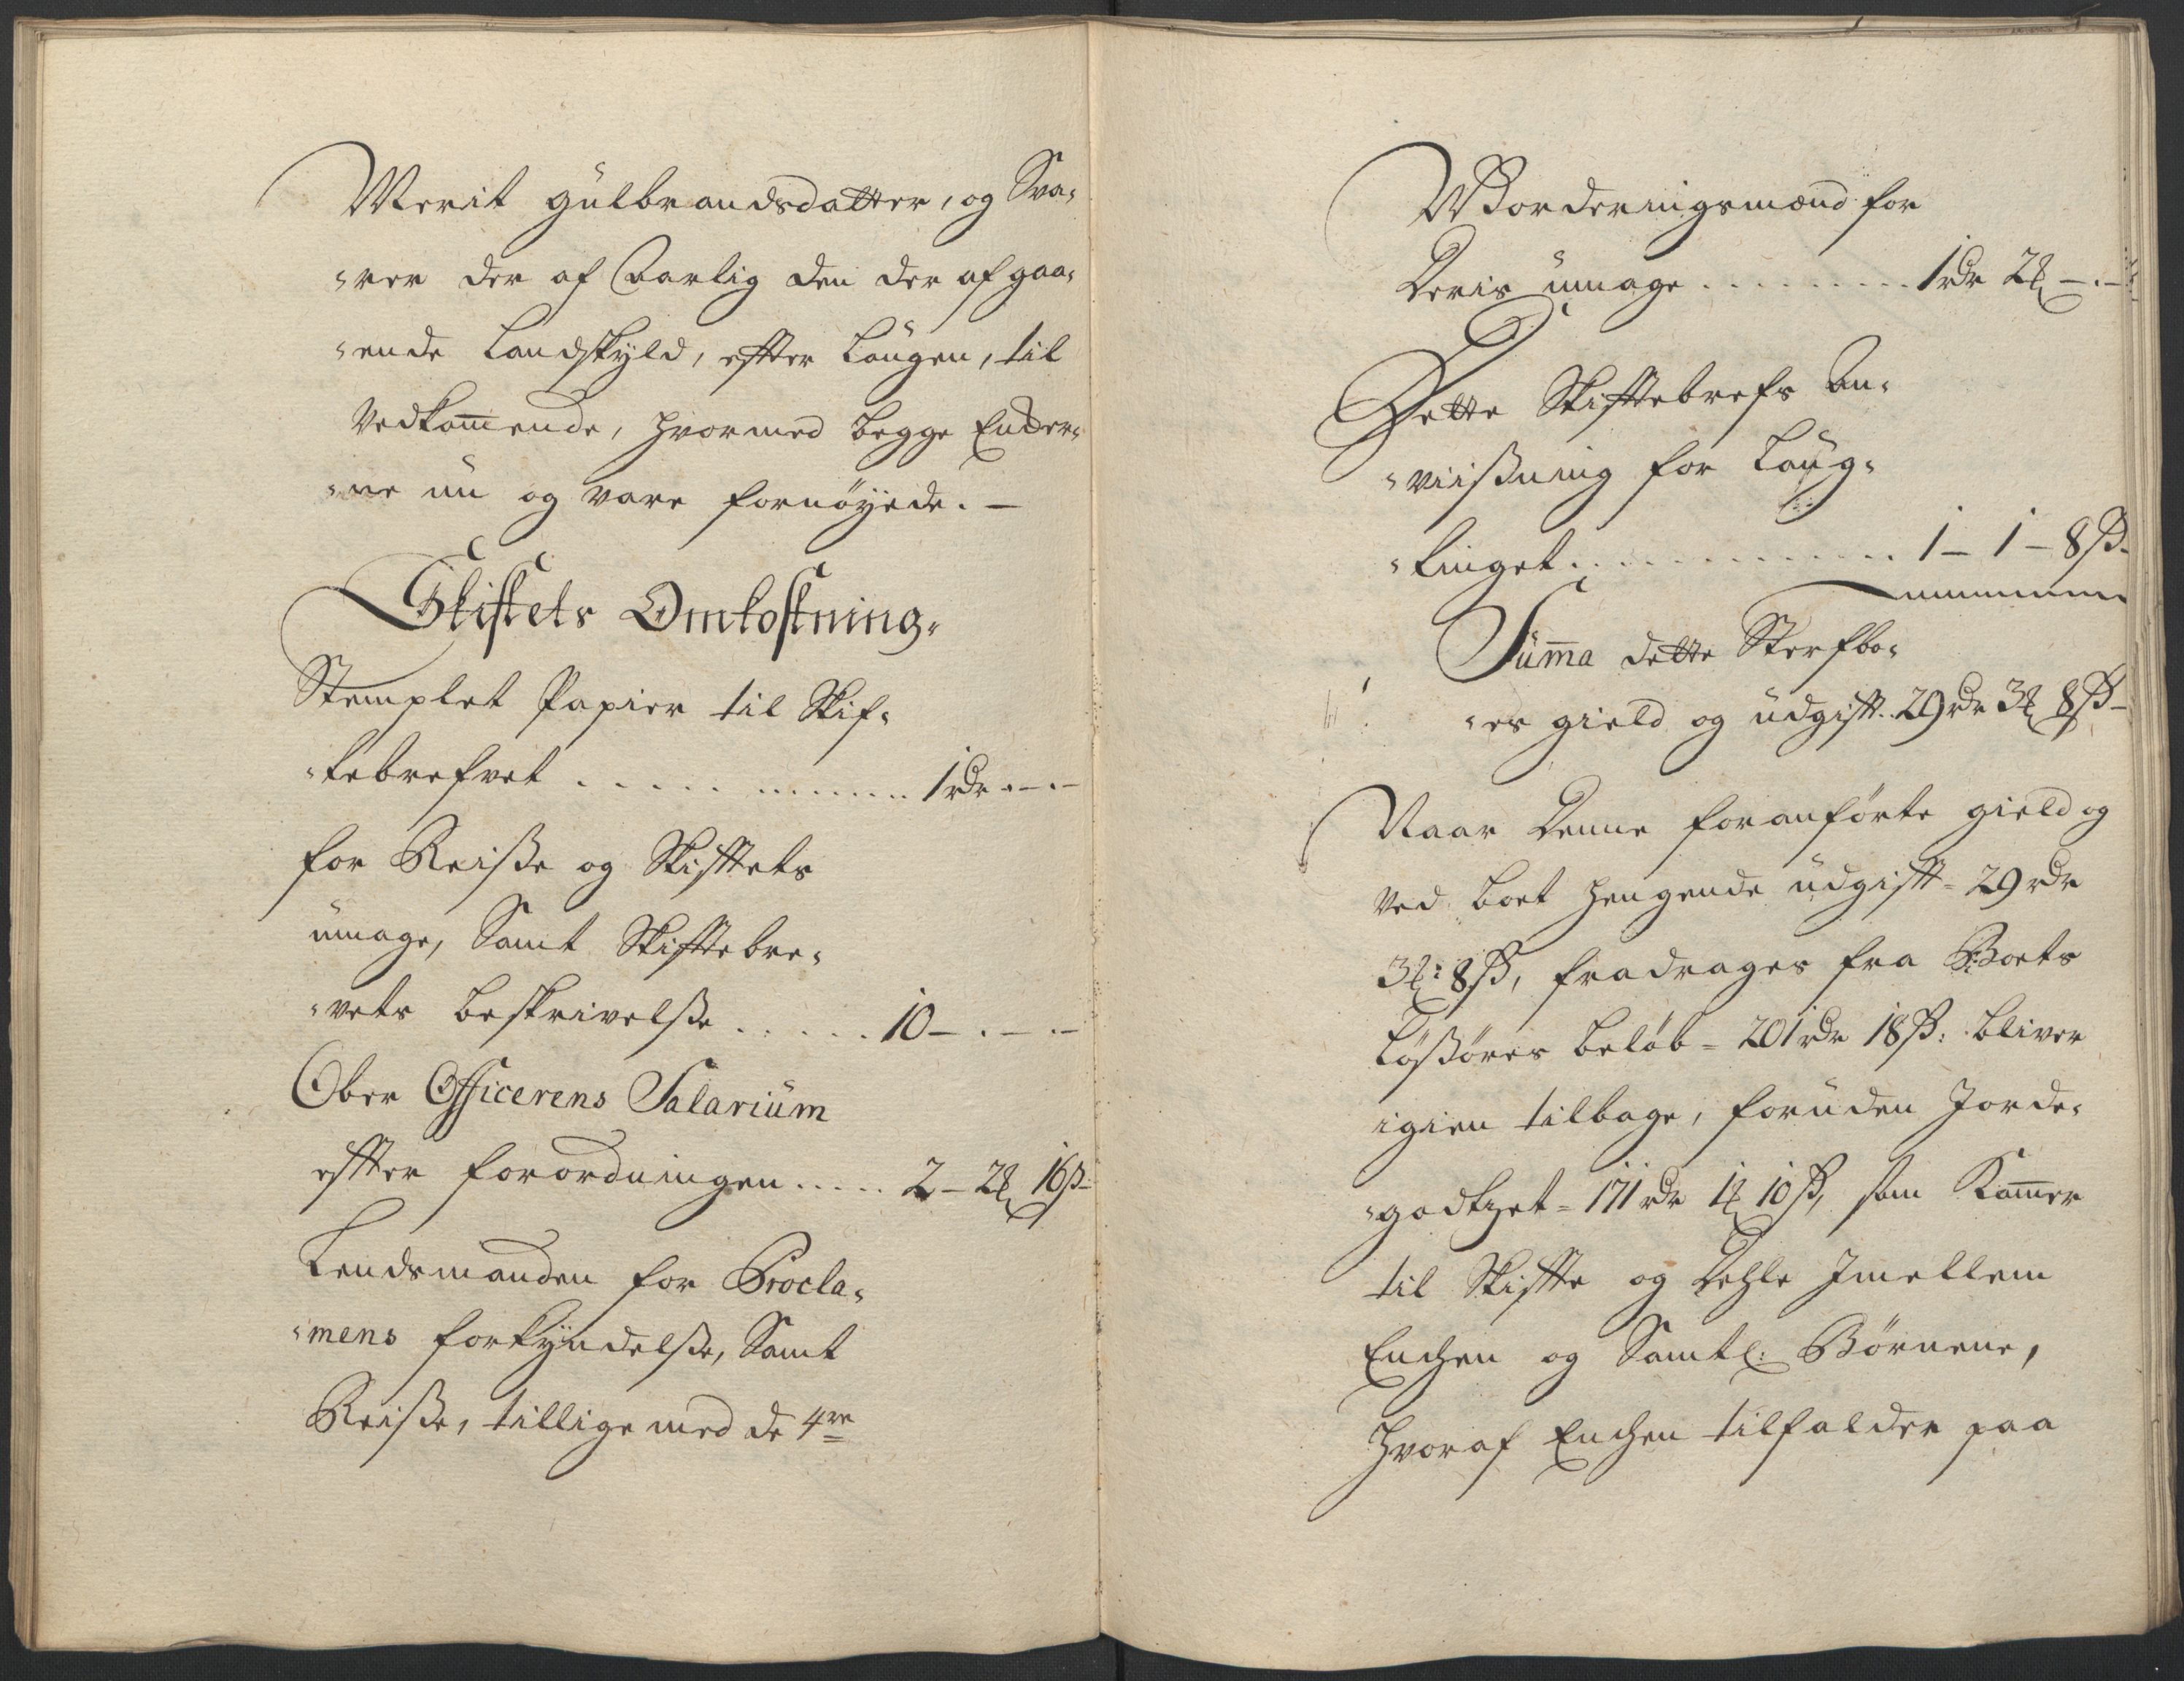 Merit Gulbrandsdatter, og Sva-
-rer der af Aarlig den der af gaa-
-ende Landskyld, effter Laugen, til
Vedkommende, hvormed begge
-ne nu og vare fornöyede. -
Skiftets Omkostning.
Stemplet Papier til Skif-
-tebrefvet . . . . . . . . . . . 1 rdr - . -
for Reisse og Skifftets
umage, Samt Skifftebre-
-vets beskrivelsse . . . . . 10 - . - . -
Ober Officerens Salarium
effter forordningen ..... 2 - 2 ₰ 16 ß -
Lendsmanden for Procla-
-mens forkyndelsse, Samt
Reisse, tillige med de 4re
Vorderingsmænd for
Deris umage . . . . . . . . . 1 rdr 2 ₰ - . -
Dette Skifftebrefs An-
-viissning for Laug-
-tinget . . . . . . . . . . . 1 - 1 - 8 ß -
Summa dette Sterfbo-
-es gield og udgifft. 29 rdr 3 ₰ 8 ß -
Naar Denne foranförte gield og
Ved boet hengende udgifft = 29 rdr
3 ₰: 8 ß, fradrages fra Boets
Lössöres beløb = 201 rdr 18 ß: bliver
igien tilbage, foruden Jorde-
-godtzet = 171 rdr 1 ₰ 10 ß, som Kommer
til Skiffte og Dehle Jmellem
Enchen og Samtl: Börnene,
hvoraf Enchen tilfalder paa